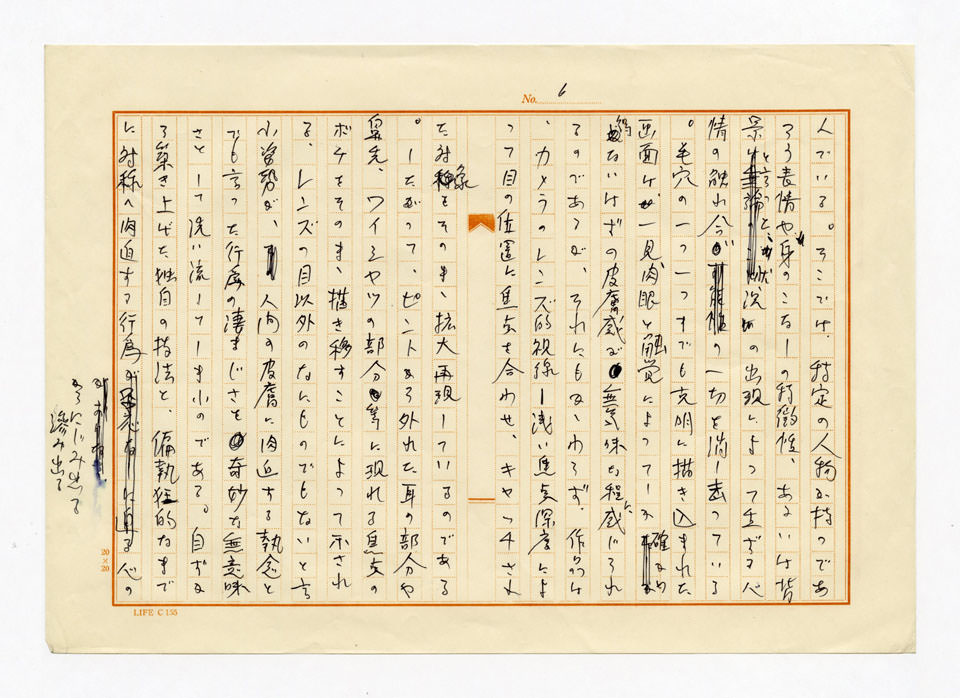 No. 6
人でいる。そこでは、特定の人物が持つであ
ろう表情や身のこなしの特徴性、あるいは背
景と言った状況の出現によって生ずる心
情の触れ合の一切を消し去っている
。毛穴の一つ一つまでも克明に描き込まれた
画面は、一見肉眼と触覚によってしか確め
ないはずの皮膚感が無気味な程に感じられ
るのであるが、それにもかかわらず、作品は
、カメラのレンズ的視線―浅い焦点深度によ
って目の位置に焦点を合わせ、キャッチされ
た対象をそのまゝ拡大再現しているのである
。したがって、ピントから外れた耳の部分や
鼻先、ワイシャツの部分等に現れる焦点の
ボケをそのまゝ描き移すことによって示され
る、レンズの目以外のなにものでもないと言
う姿勢が、人間の皮膚に肉迫する執念と
でも言った行為の凄まじさを奇妙な無意味
さとして洗い流してしまうのである。自ずか
ら築き上げた独自の技法と、偏執狂的なまで
に対称へ肉迫する行為
心の
からにじみ出る
滲み出る
20×20
LIFE C 155